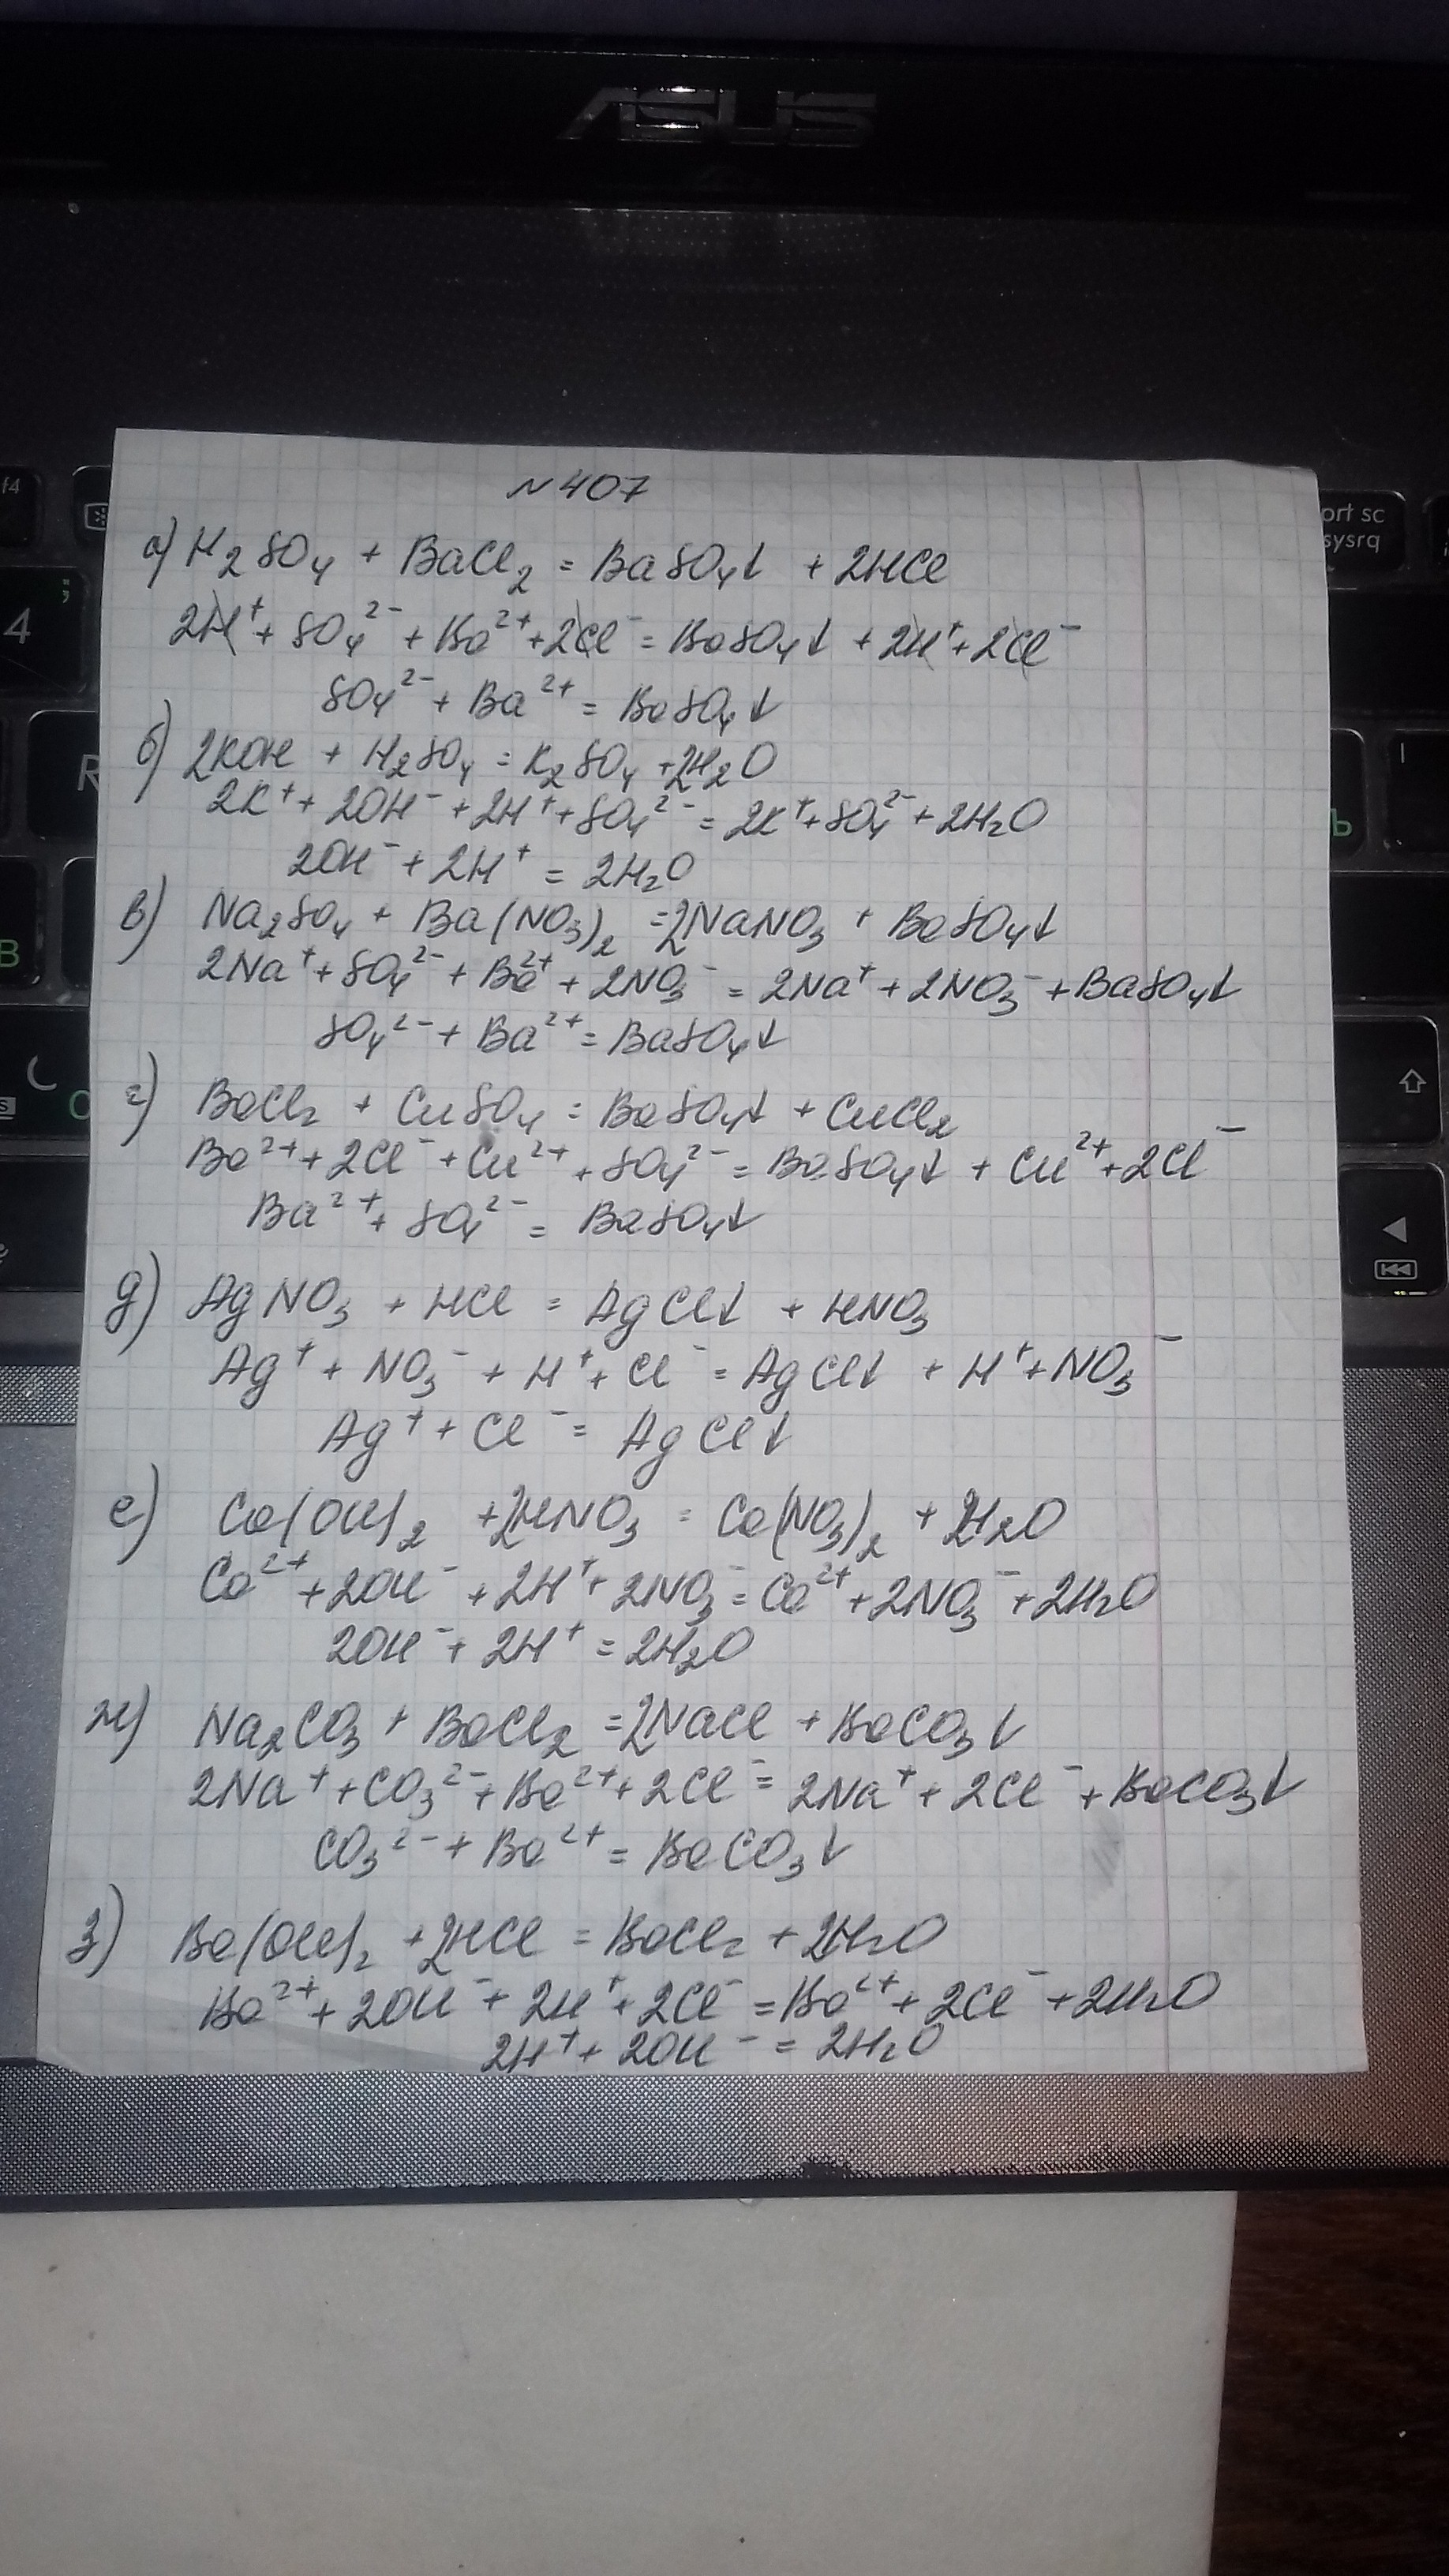 ASUS
f4
ort sc
sysrq
4
;
R
Ь
B
C
№ 407
а) H₂SO₄ + BaCl₂ = BaSO₄↓ + 2HCl
2H⁺ + SO₄²⁻ + Ba²⁺ + 2Cl⁻ = BaSO₄↓ + 2H⁺ + 2Cl⁻
SO₄²⁻ + Ba²⁺ = BaSO₄↓
б) 2KOH + H₂SO₄ = K₂SO₄ + 2H₂O
2K⁺ + 2OH⁻ + 2H⁺ + SO₄²⁻ = 2K⁺ + SO₄²⁻ + 2H₂O
2OH⁻ + 2H⁺ = 2H₂O
в) Na₂SO₄ + Ba(NO₃)₂ = 2NaNO₃ + BaSO₄↓
2Na⁺ + SO₄²⁻ + Ba²⁺ + 2NO₃⁻ = 2Na⁺ + 2NO₃⁻ + BaSO₄↓
SO₄²⁻ + Ba²⁺ = BaSO₄↓
г) BaCl₂ + CuSO₄ = BaSO₄↓ + CuCl₂
Ba²⁺ + 2Cl⁻ + Cu²⁺ + SO₄²⁻ = BaSO₄↓ + Cu²⁺ + 2Cl⁻
Ba²⁺ + SO₄²⁻ = BaSO₄↓
д) AgNO₃ + HCl = AgCl↓ + HNO₃
Ag⁺ + NO₃⁻ + H⁺ + Cl⁻ = AgCl↓ + H⁺ + NO₃⁻
Ag⁺ + Cl⁻ = AgCl↓
е) Ca(OH)₂ + 2HNO₃ = Ca(NO₃)₂ + 2H₂O
Ca²⁺ + 2OH⁻ + 2H⁺ + 2NO₃⁻ = Ca²⁺ + 2NO₃⁻ + 2H₂O
2OH⁻ + 2H⁺ = 2H₂O
ж) Na₂CO₃ + BaCl₂ = 2NaCl + BaCO₃↓
2Na⁺ + CO₃²⁻ + Ba²⁺ + 2Cl⁻ = 2Na⁺ + 2Cl⁻ + BaCO₃↓
CO₃²⁻ + Ba²⁺ = BaCO₃↓
з) Ba(OH)₂ + 2HCl = BaCl₂ + 2H₂O
Ba²⁺ + 2OH⁻ + 2H⁺ + 2Cl⁻ = Ba²⁺ + 2Cl⁻ + 2H₂O
2H⁺ + 2OH⁻ = 2H₂O